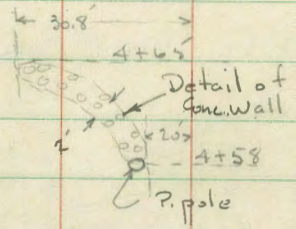 30.8'
4+65
Detail of
Conc. Wall
2'
20'
4+58
P. pole